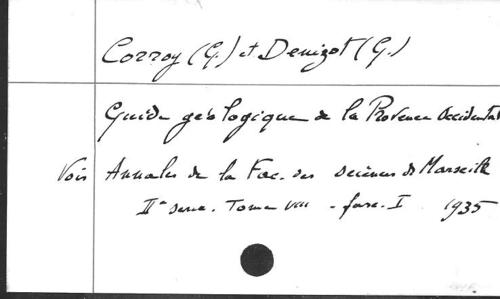 Corroy (G.) et Denizot (G.)
Guide géologique de la Provence Occidentale
Voir Annales de la Fac. des Sciences de Marseille
IIe série. Tome VIII - fasc. I 1935